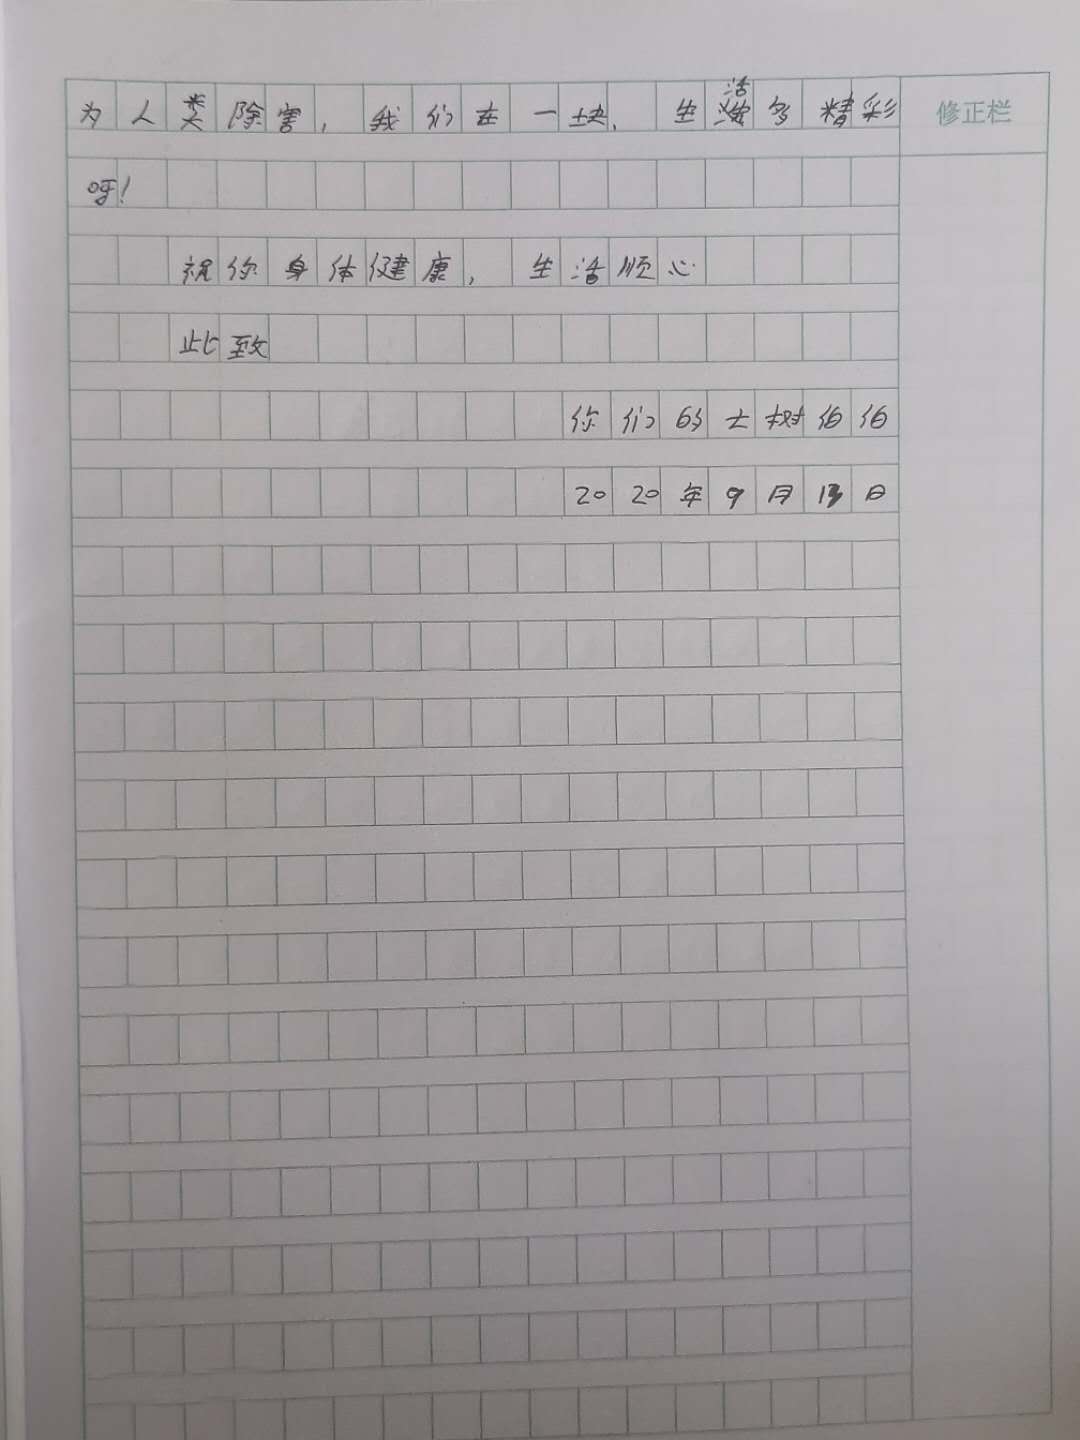 为人类除害，我们在一块，生活多精彩 修正栏
呀！
祝你身体健康，生活顺心
此致
你们的大树伯伯
2020年9月13日